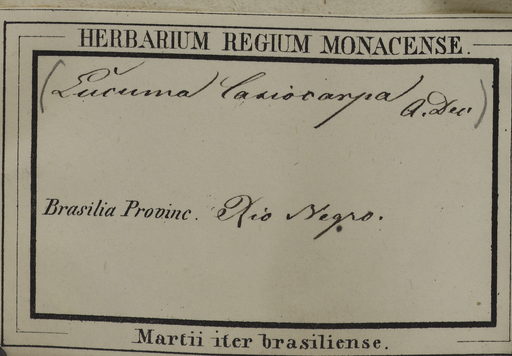 HERBARIUM REGIUM MONACENSE.
(Lucuma lasiocarpa A. Dec)
Brasilia Provinc. Rio Negro.
Martii iter brasiliense.